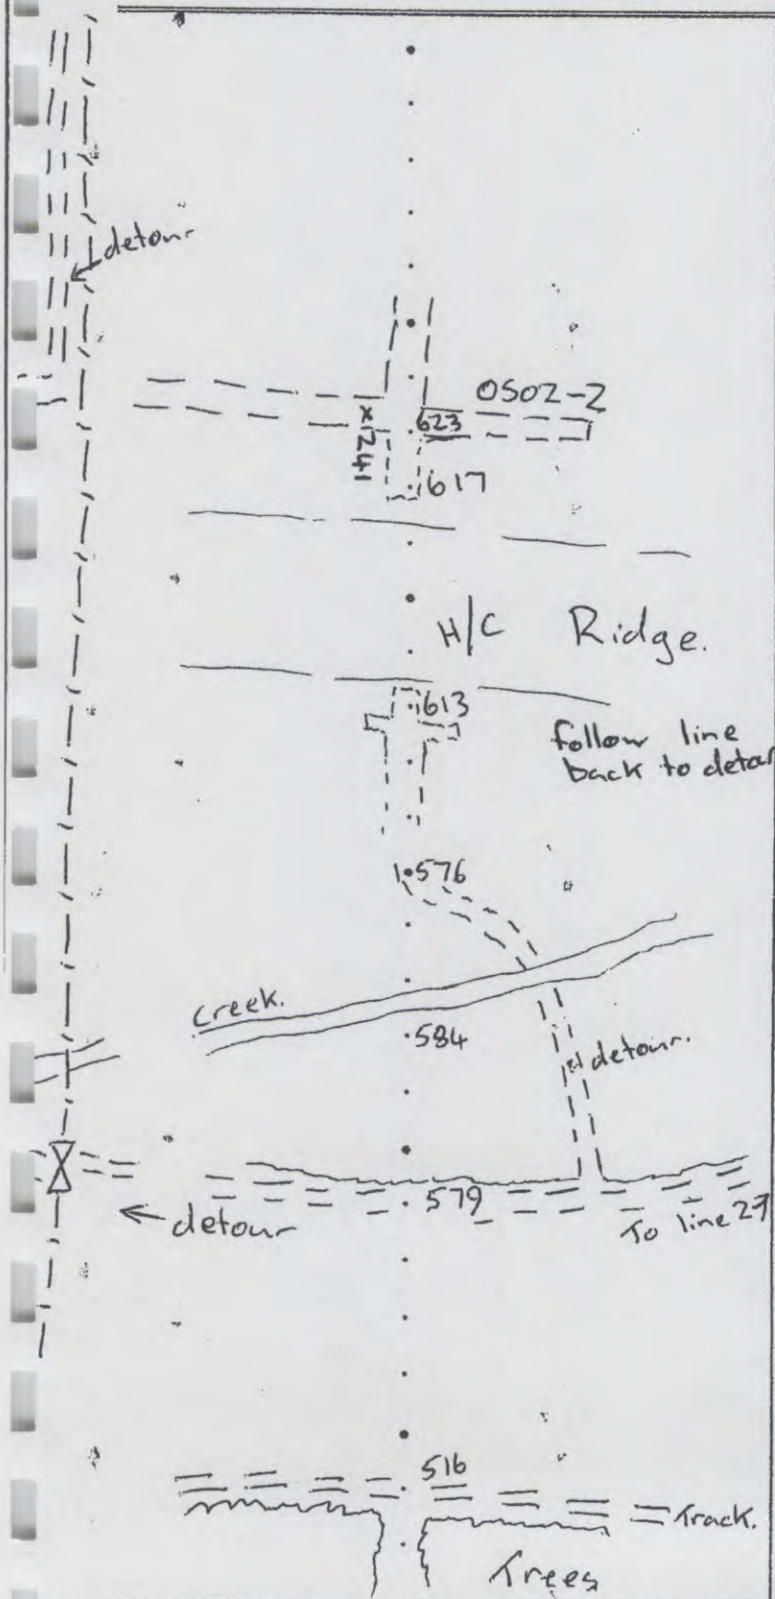 detour
OSO2-2
623
x 241
617
H/C Ridge.
613
follow line
back to detour
576
Creek.
584
detour.
579
detour
To line 27
516
Track.
Trees